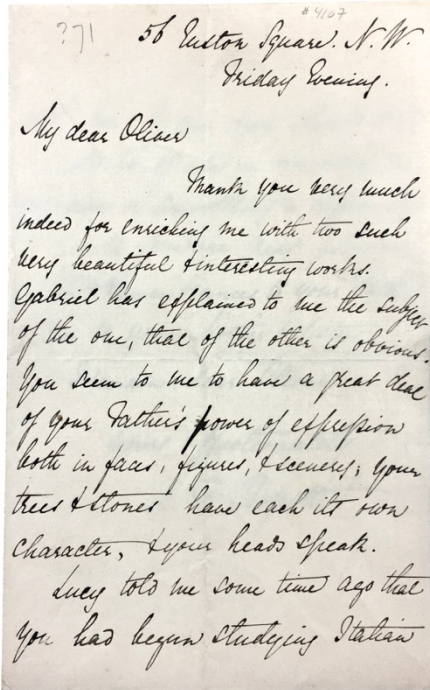 ?71
#4107
56 Euston Square. N. W.
Friday Evening.
My dear Oliver
Thank you very much
indeed for enriching me with two such
very beautiful & interesting works.
Gabriel has explained to me the subject
of the one, that of the other is obvious.
You seem to me to have a great deal
of your Father's power of expression
both in faces, figures, & scenery; your
trees & stones have each its own
character, & your heads speak.
Lucy told me some time ago that
you had begun studying Italian